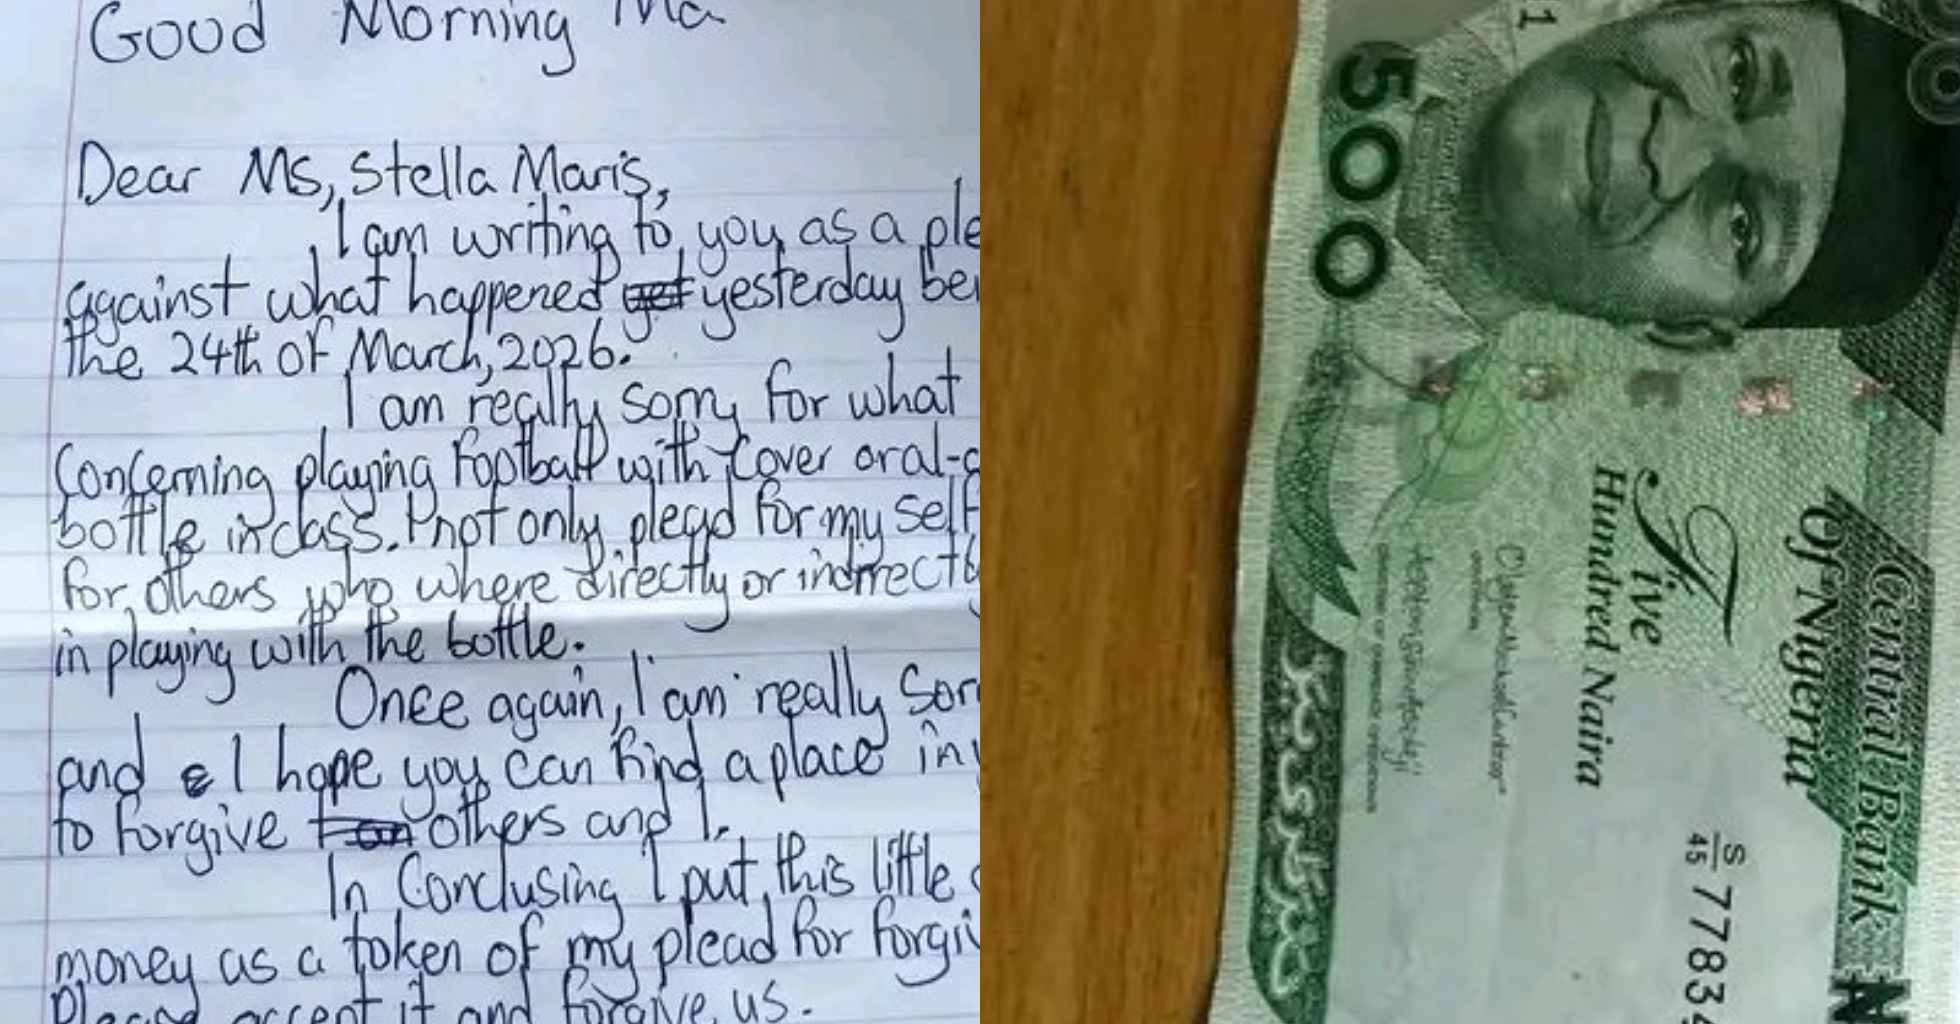 Good Morning Ma
Dear Ms, Stella Maris,
I am writing to you as a
against what happened yesterday
the 24th of March, 2026.
I am really sorry for what
Concerning playing Football with Cover oral-
bottle in class. I not only plead for my self
for others who where directly or indirectly
in playing with the bottle.
Once again, I am really
and I hope you can find a place in
to forgive others and I.
In Conclusing I put this little
money as a token of my plead for
Please accept it and forgive us.
500
Central Bank
Of Nigeria
Five
Hundred Naira
S/45 77834